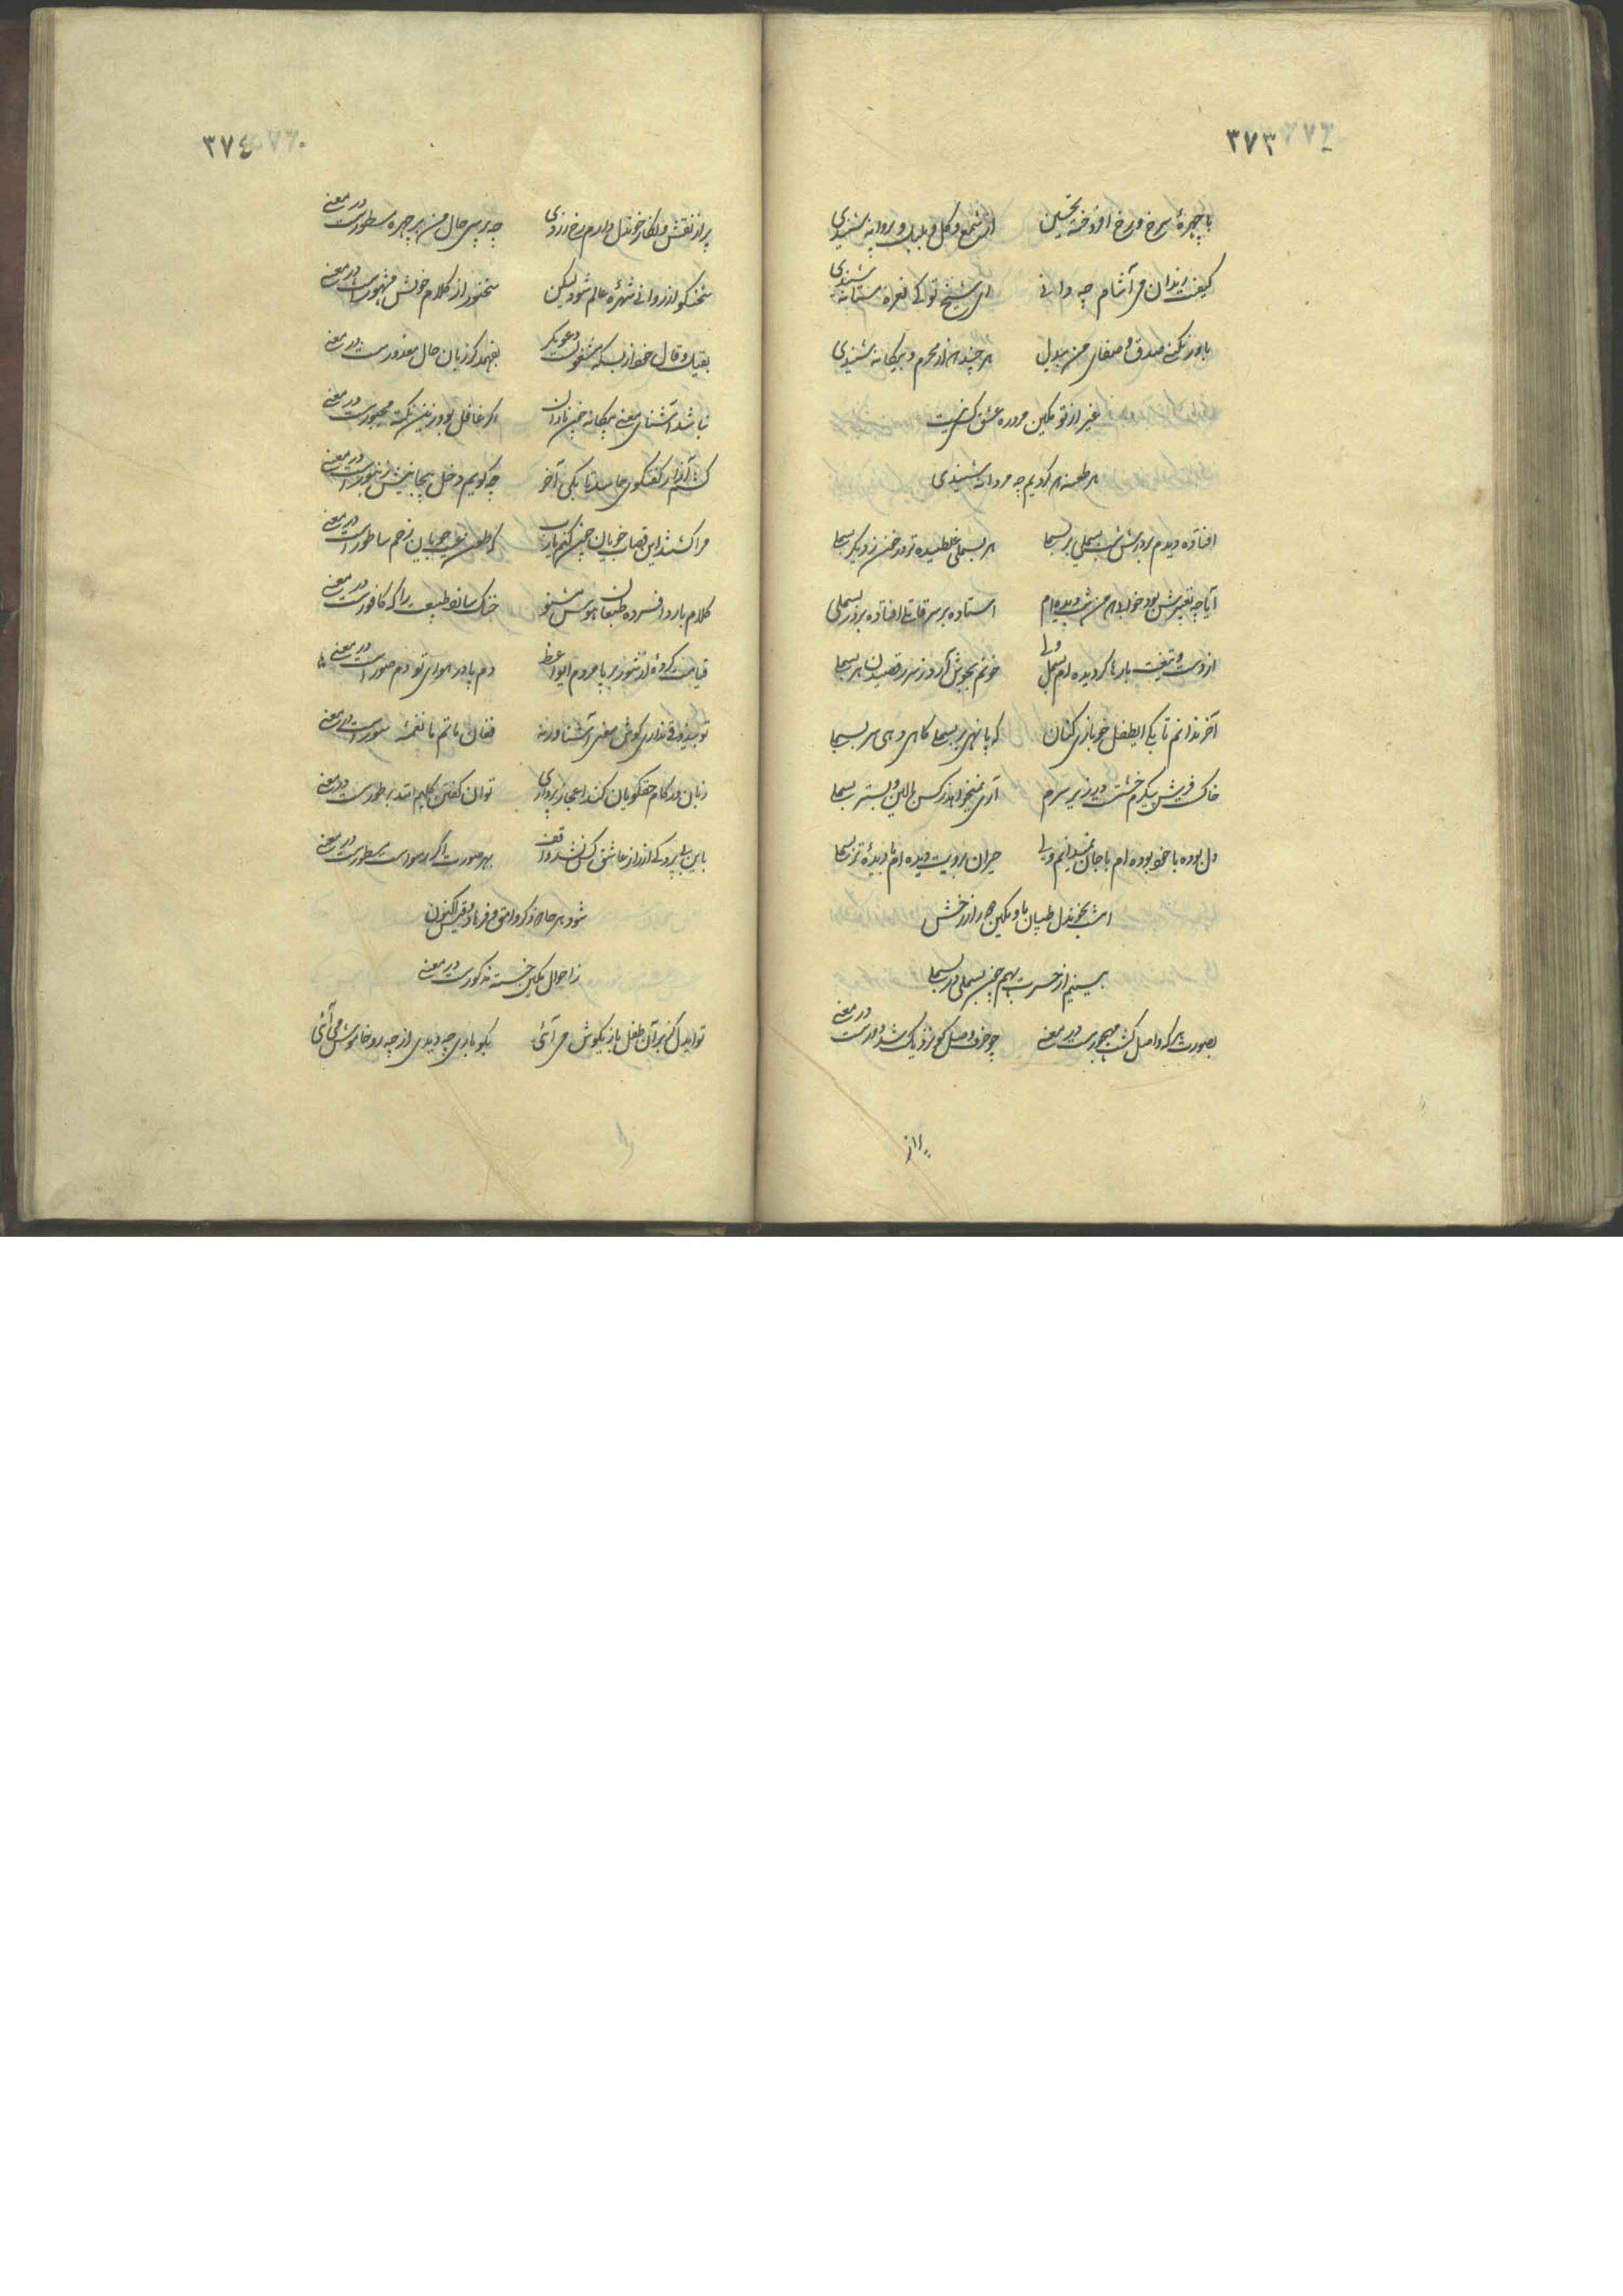 ۳۷۳
با چهرهٔ سرخ و رخ افروخته تحسین از شمع و گل و بلبل و پروانه شنیدی
کیفیت رندان می آشام چه دانی ای شیخ تو کی نعرهٔ مستانه شنیدی
باور نکنی صدق و صفای من بیدل هر چند هم از محرم و بیگانه شنیدی
غیر از تو مکین در ره عشق کسی نیست
هر طعنه که کردیم چه مردانه شنیدی
افتاده دیدم بر درش شب بسملی بر بسملی هر بسملی غلطیده تر در خون ز دیگر بسملی
آیا چه تعبیرش بود خوابی که من شب دیده ام استاده بر سر قاتلی افتاده بر در بسملی
از دست و تیغت بارها گردیده ام بسمل ولی خونم بجوش آرد ز سر رقصیدن هر بسملی
آخر ندانم تا بکی ای طفل خونبازی کنان که پا نهی بر بسملی گاهی دهی سر بسملی
خاک فرش پیکرم خشت در زیر سرم آری نمیخواهد ز کس بالین و بستر بسملی
دل بوده با خود بوده ام با جان نمیدانم ولی حیران برویت دیده ام با دیدهٔ تر بسملی
امشب بخون دل طپان ما و مکین در از رخش
بسینیم از حسرت بهم چون بسملی در بسملی
بصورت هر که واصل گشت مهجورست در معنی چو حرف وصل کو نزدیک شد دورست در معنی
۳۷۴
پر از نقش و نگار خون دل دارم رخ زردی چه پرسی حال من بر چهره مسطورست در معنی
سخنگو از روانی شهرهٔ عالم شود لیکن سخنور از کلام خویش مشهورست در معنی
بقیل و قال خود از بسکه مشغولست دعویگر نفهمد گر زبان حال معذورست در معنی
نباشد آشنای معنی بیگانه چون نادان اگر غافل بود زین نکته مجبورست در معنی
کشم آزار گفتگوی حاسد تا بکی آخر چه گویم دخل بیجا نیش زنبورست در معنی
مرا کشتند این قصاب خویان چون کنم یارب که طعن عیبجویان زخم ساطورست در معنی
کلام بارد افسرده طبعان هوس مشنو خنک سازد طبیعت را که کافورست در معنی
قیامت کرده از شور بر پا مردم ای واعظ دم پا در هوای تو دم صورست در معنی
تو بیذوقی نداری گوش معنی آشنا ورنه فغان ماتم ما نغمهٔ سورست در معنی
زبان در کام حقگویان کند اعجاز پردازی توان گفتن کلیم الله بر طورست در معنی
باین بی پردگی از راز عاشق کس نشد واقف بهر صورت اگر رسواست مستورست در معنی
شود هر جا که ذکر وامق و فرهاد و قیس اکنون
ز احوال مکین خسته مذکورست در معنی
تو ایدل کز بر آن طفل بازیگوش می آئی بگو باری چه دیدی از چه رو خاموش می آئی